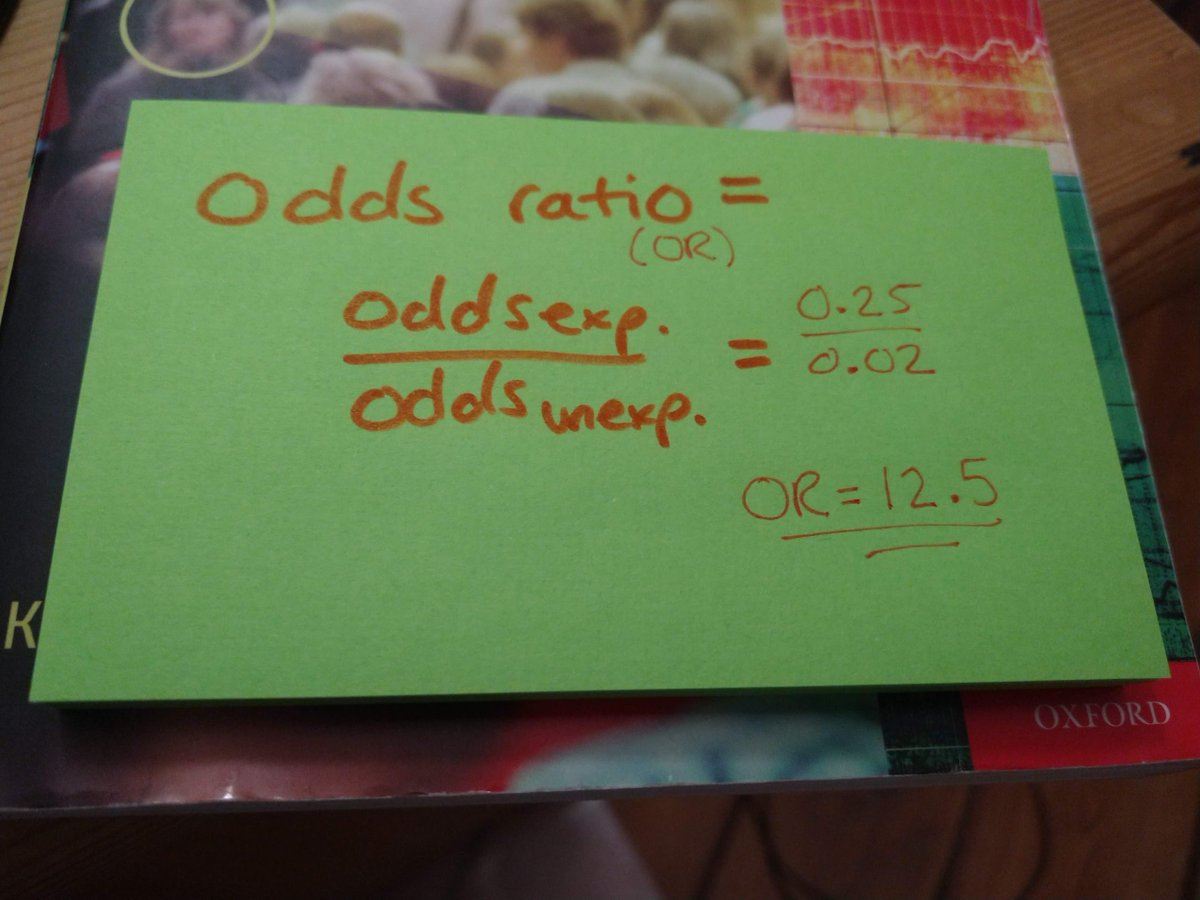 Odds ratio =
(OR)
odds exp. = 0.25
odds unexp. 0.02
OR = 12.5
K
OXFORD